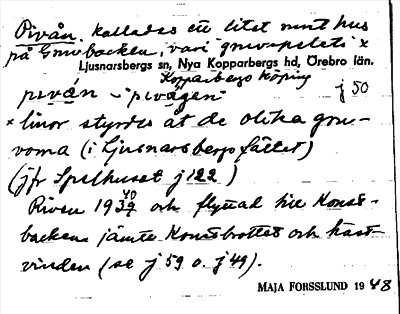 Pivån, kallades ett litet runt hus
på Gruvbacken, vari gruvspelets x
Ljusnarsbergs sn, Nya Kopparbergs hd, Örebro län.
Kopparbergs köping
pivån - "pivågen" j 50
x linor styrdes åt de olika gru-
vorna (i Ljusnarsbergsfältet)
(jfr Spelhuset j 122)
40
Riven 1937 och flyttad till Konst-
backen jämte Konstbrottet och häst-
vinden (se j 59 o. j 49).
MAJA FORSSLUND 1948